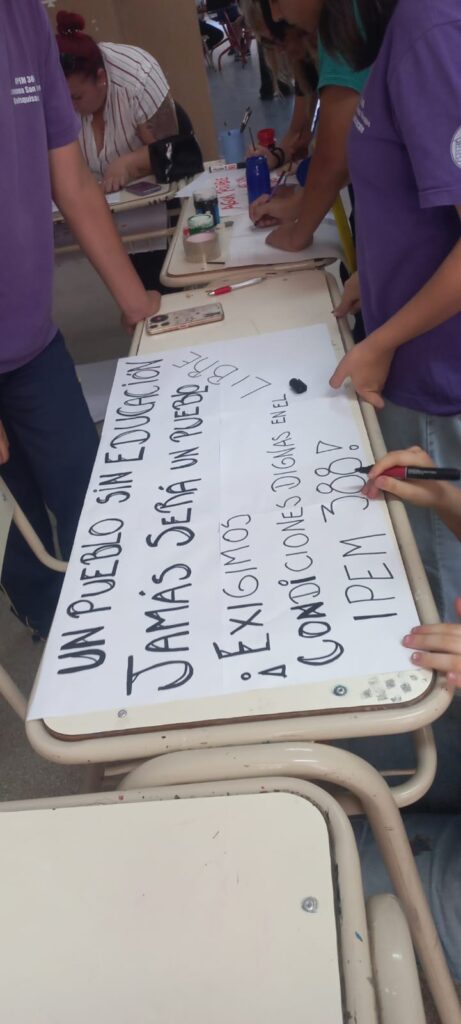 UN PUEBLO SIN EDUCACIÓN
JAMÁS SERÁ UN PUEBLO
LIBRE
¡EXIGIMOS
CONDICIONES DIGNAS EN EL
IPEM 388!
AGUA
IPEM 38